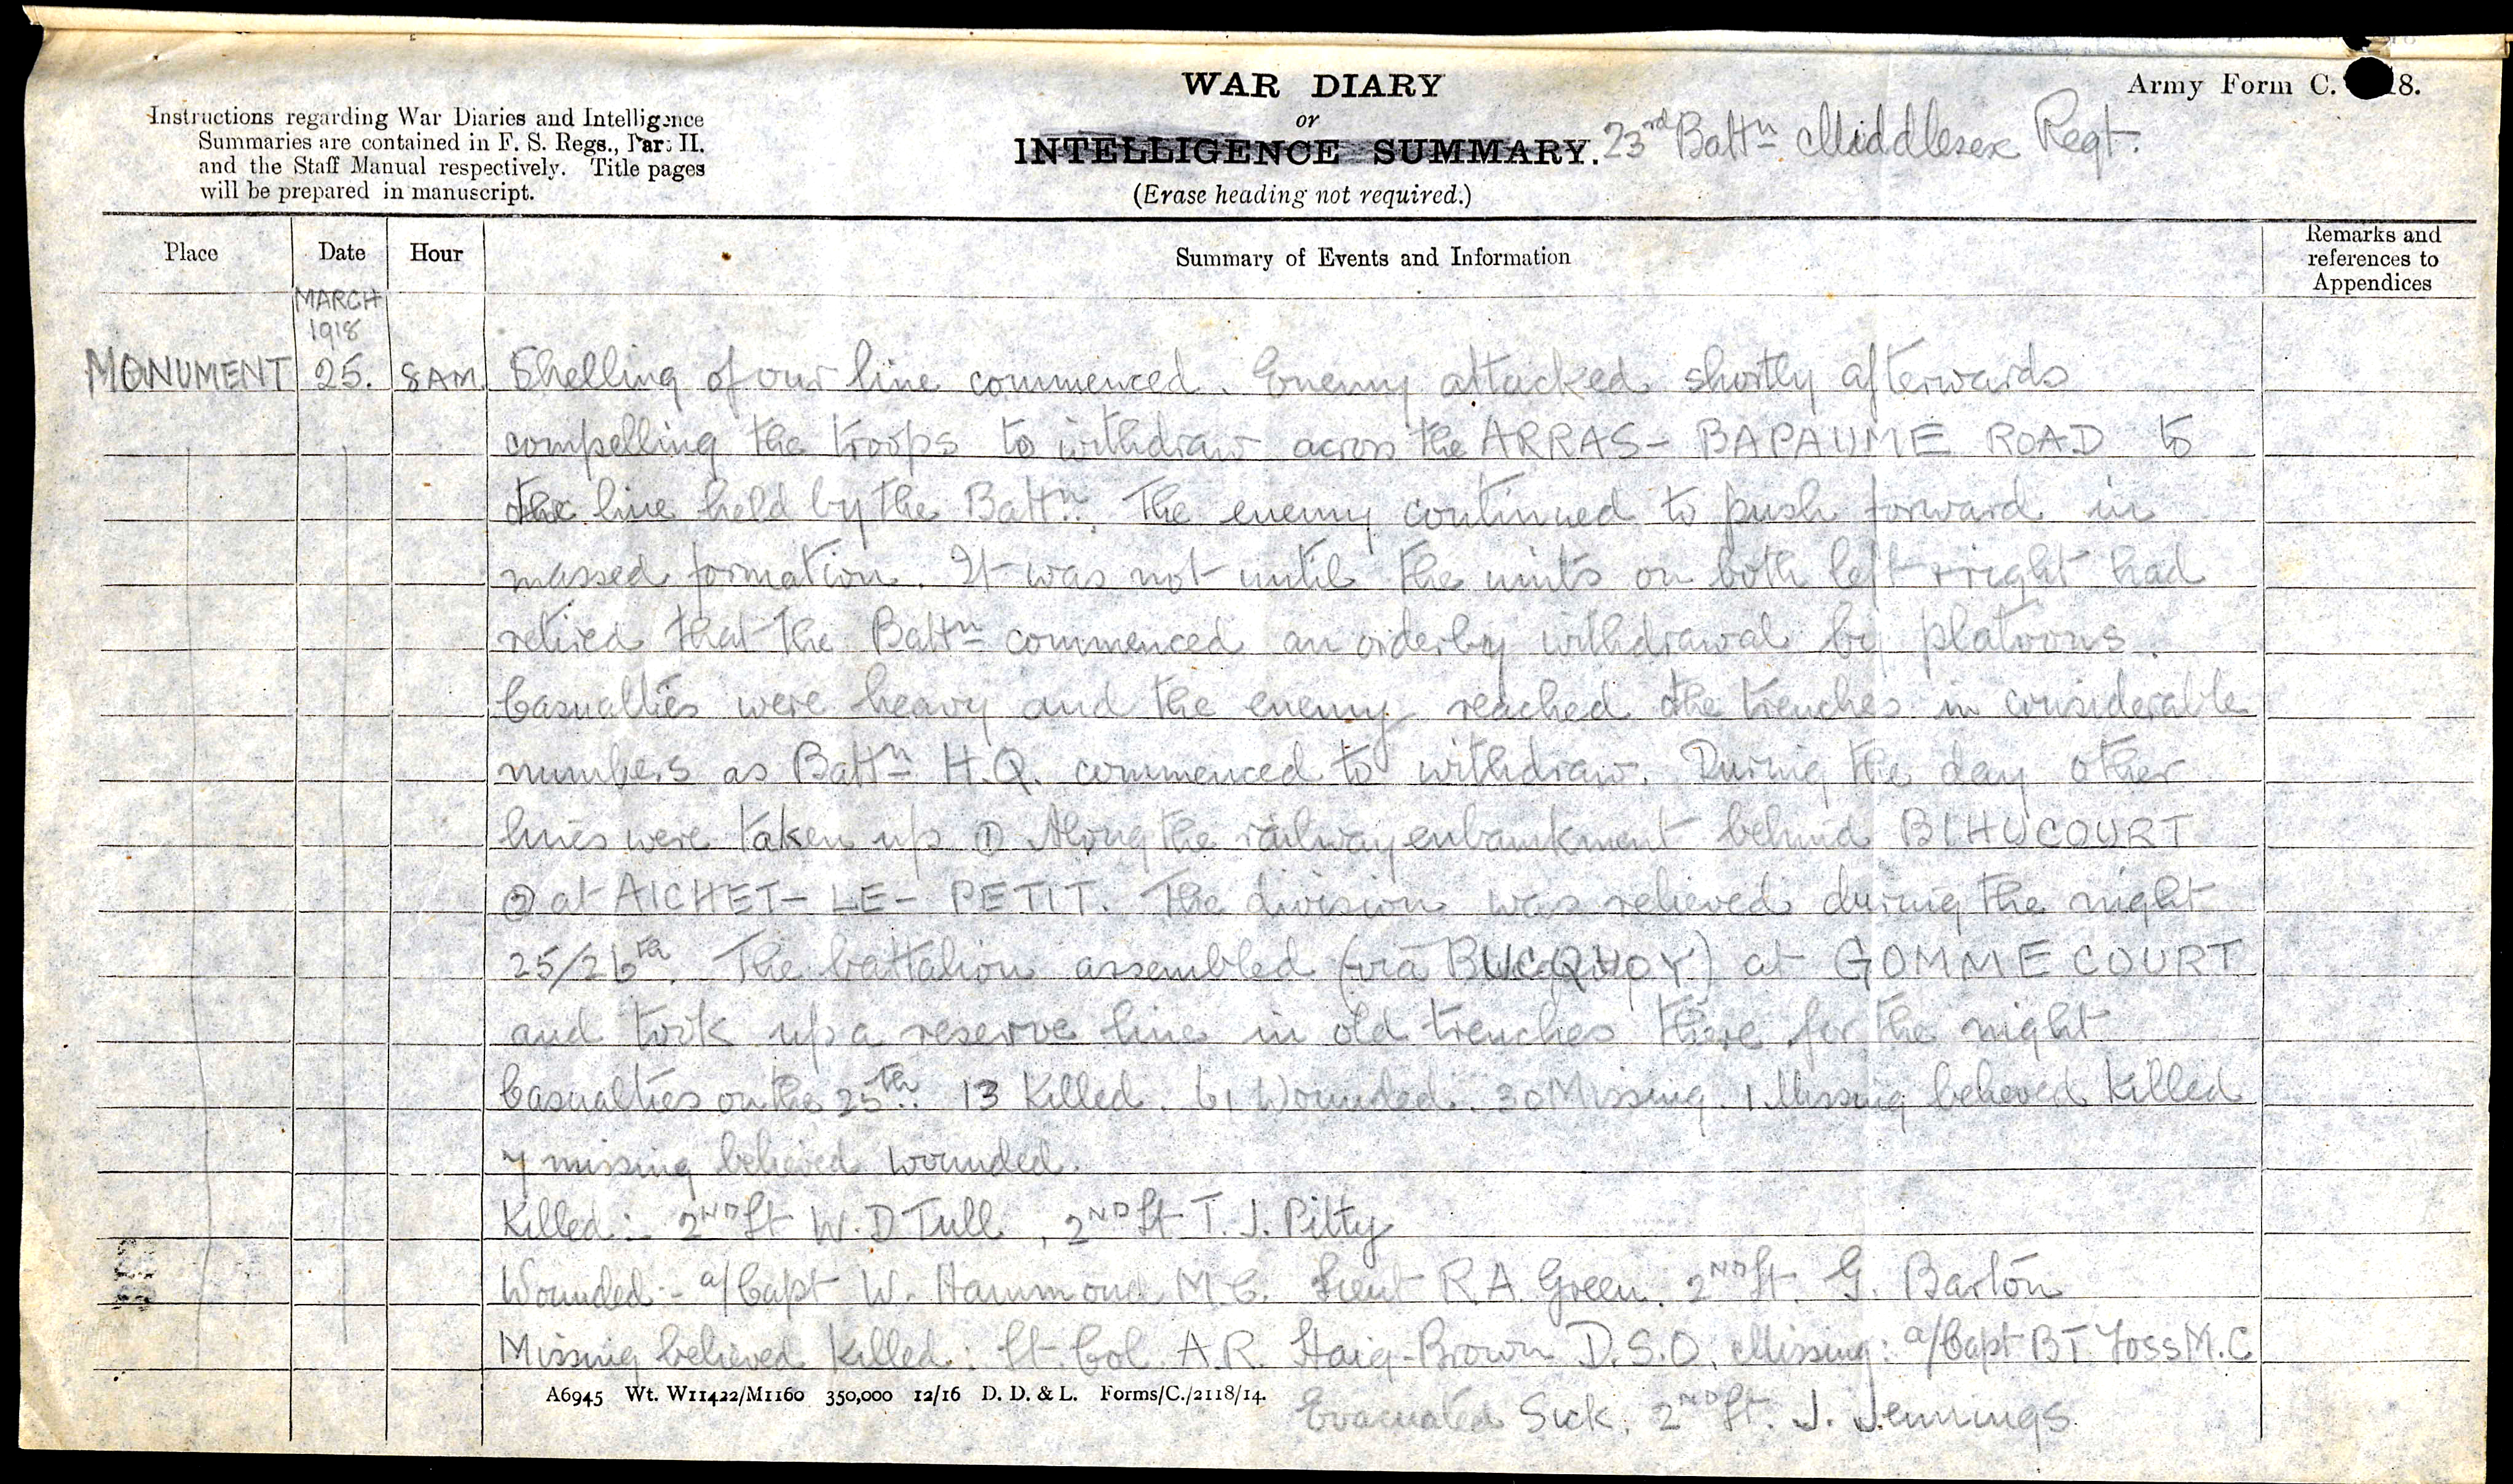 WAR DIARY
or
INTELLIGENCE SUMMARY.
(Erase heading not required.)
Army Form C. 18.
Instructions regarding War Diaries and Intelligence
Summaries are contained in F. S. Regs., Part II.
and the Staff Manual respectively. Title pages
will be prepared in manuscript.
23rd Battn Middlesex Regt.
Place Date Hour Summary of Events and Information Remarks and references to Appendices
MARCH
1918
MONUMENT 25. 8 AM. Shelling of our line commenced. Enemy attacked shortly afterwards
compelling the troops to withdraw across the ARRAS - BAPAUME ROAD to
the line held by the Battn. The enemy continued to push forward in
massed formation. It was not until the units on both left + right had
retired that the Battn commenced an orderly withdrawal by platoons.
Casualties were heavy and the enemy reached the trenches in considerable
numbers as Battn H.Q. commenced to withdraw. During the day other
lines were taken up ① Along the railway embankment behind BIHUCOURT
② at AICHET - LE - PETIT. The division was relieved during the night
25/26th. The battalion assembled (via BUCQUOY) at GOMMECOURT
and took up a reserve line in old trenches there for the night
Casualties on the 25th. 13 Killed. 61 Wounded. 30 Missing. 1 Missing believed Killed
7 missing believed wounded.
Killed: 2ND Lt W. D Tull, 2ND Lt T. J. Pitty
Wounded:- a/Capt W. Hammond M.C. Lieut R.A. Green. 2ND Lt. G. Barton
Missing believed Killed: Lt. Col. A.R. Haig-Brown D.S.O. Missing: a/Capt B T Foss M.C
Evacuated Sick. 2ND Lt. J. Jennings
A6945 Wt. W11422/M1160 350,000 12/16 D. D. & L. Forms/C./2118/14.